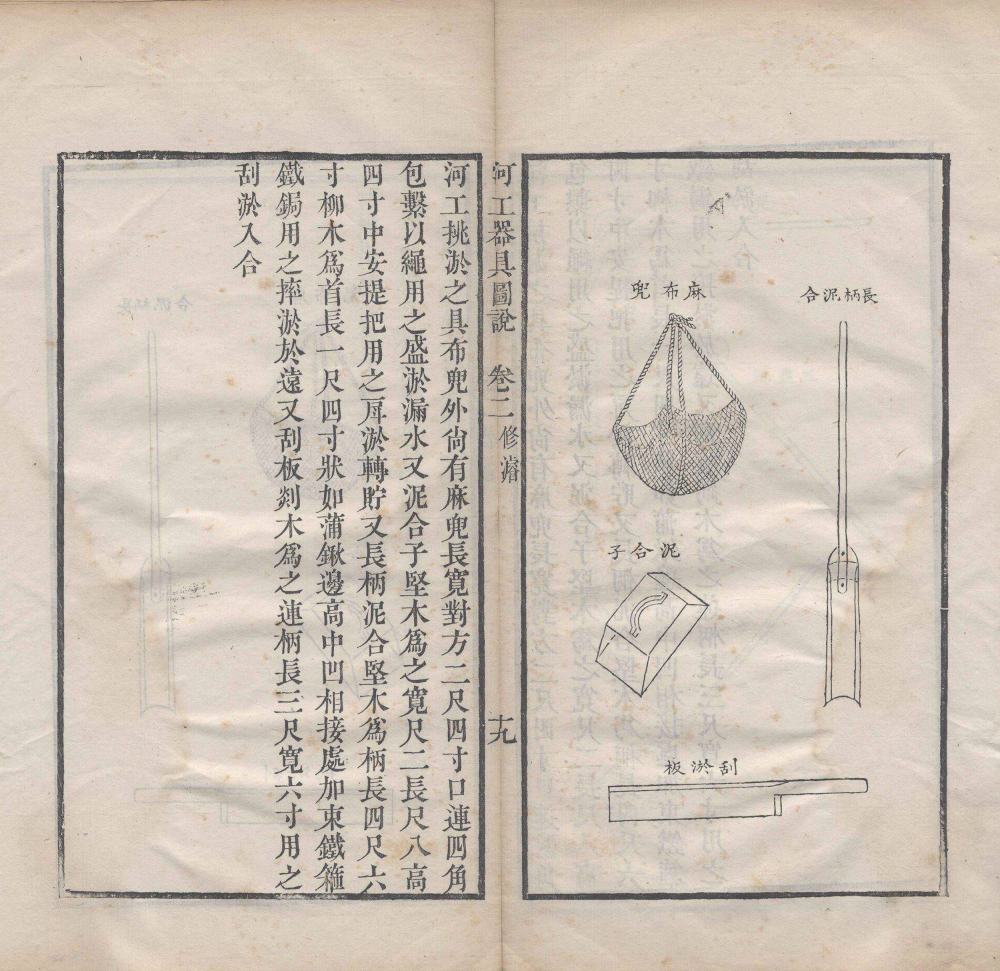 長柄泥合
麻布兜
泥合子
刮淤板
河工器具圖說 卷二 修濬 十九
河工挑淤之具布兜外尙有麻兜長寬對方二尺四寸口連四角
包繫以繩用之盛淤漏水又泥合子堅木爲之寬尺二長尺八高
四寸中安提把用之戽淤轉貯又長柄泥合堅木爲柄長四尺六
寸柳木爲首長一尺四寸狀如蒲鍬邊高中凹相接處加束鐵箍
鐵鋦用之摔淤於遠又刮板剡木爲之連柄長三尺寬六寸用之
刮淤入合